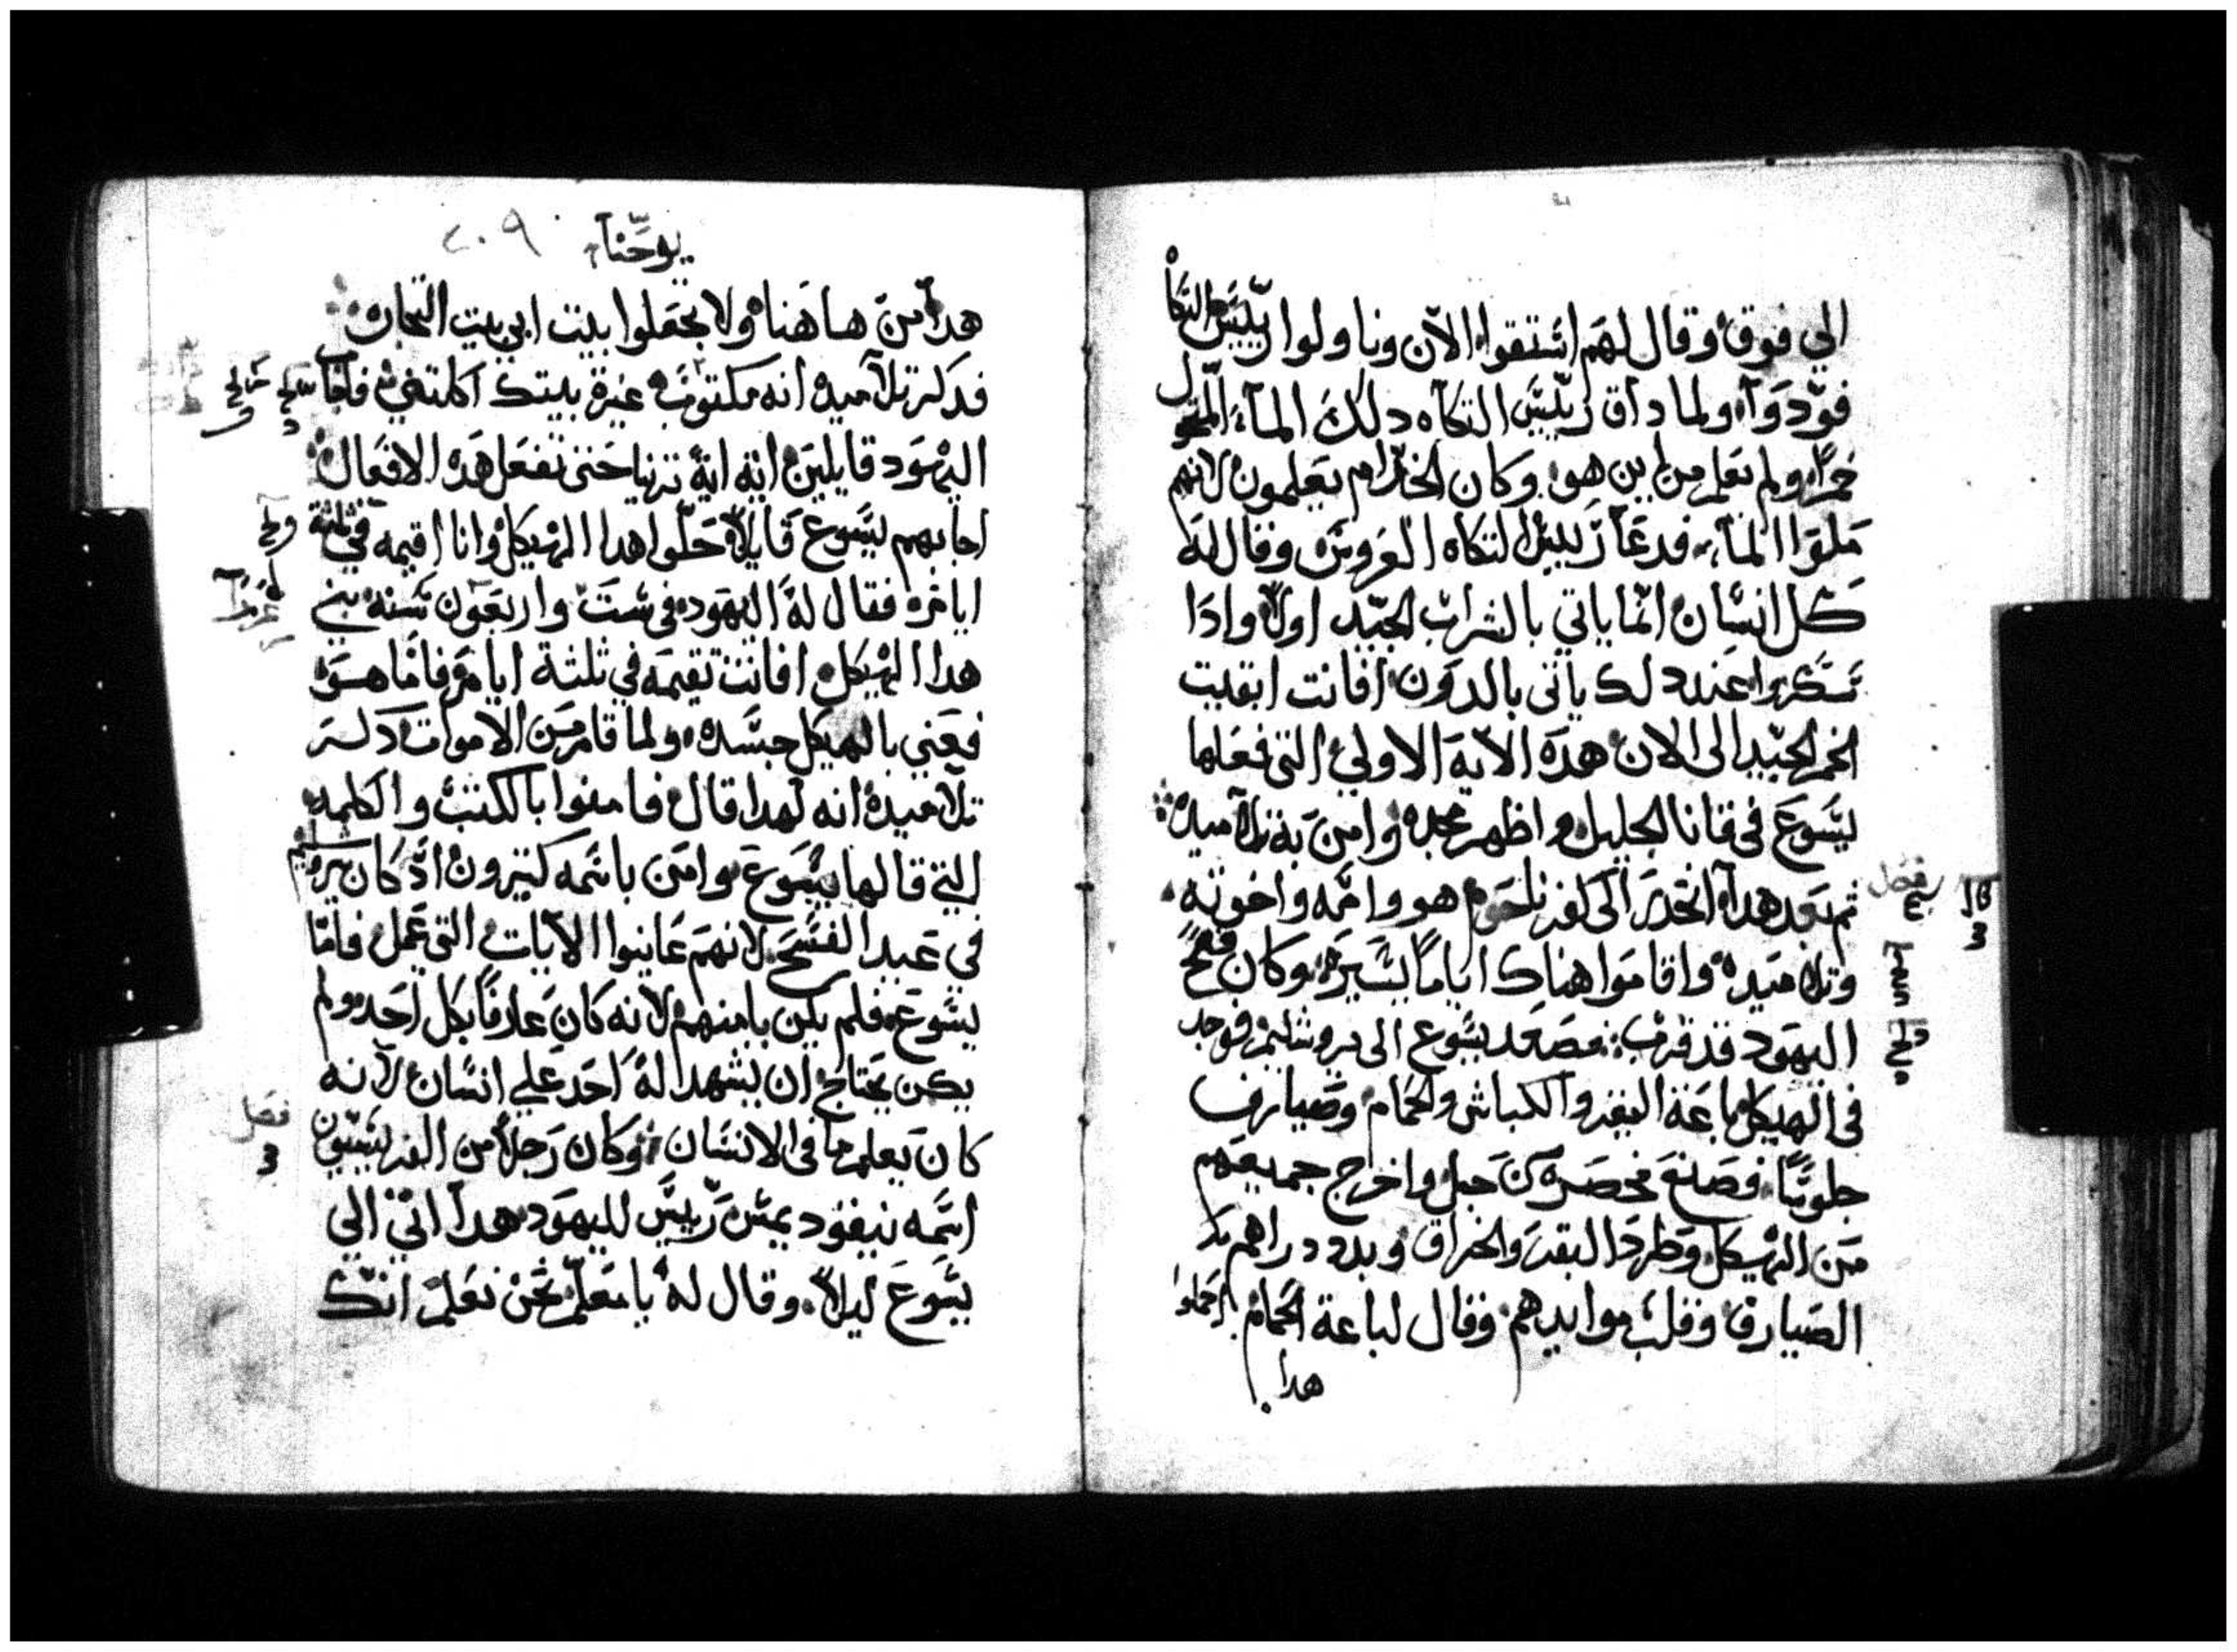 الي فوق وقال لهم استقوا الان وناولوا رييس التكا
فودوآه ولما داق رييس التكاه دلك المآء المتحول
خمرا ولم يعلم من اين هو وكان الخدام يعلمون لانهم
ملوا المآء فدعا رييس التكاه العروس وقال له
كل انسان انما ياتي بالشراب الجيد اولا وادا
سكروا عند دلك ياتي بالدون افانت ابقيت
الخمر الجيد الى الان هده الاية الاولي التي فعلها
يسوع في قانا الجليل واظهر مجده وامن به تلاميده
ثم بعد هدا انحدر الى كفرناحوم هو وامه واخوته
وتلاميده واقاموا هناك اياما يسيره وكان فصح
اليهود قد قرب فصعد يسوع الى يروشليم فوجد
في الهيكل باعة البقر والكباش والحمام وصيارف
جلوسا فصنع مخصره من حبل واخرج جميعهم
من الهيكل وطرد البقر والخراف وبدد دراهم
الصيارف وقلب موايدهم وقال لباعة الحمام احملوا
هدا
فصل
يوحنا
٢٠٩
هدا من هاهنا ولا تجعلوا بيت ابي بيت التجاره
فدكر تلاميده انه مكتوب غيرة بيتك اكلتني فاجاب
اليهود قايلين ايه اية ترينا حتى تفعل هده الافعال
اجابهم يسوع قايلا حلوا هدا الهيكل وانا اقيمه في ثلثة
ايام فقال له اليهود في ست واربعون سنه بني
هدا الهيكل افانت تقيمه في ثلثة ايام فاما هو
فعني بالهيكل جسده ولما قام من الاموات دكر
تلاميده انه لهدا قال فامنوا بالكتب والكلمه
التي قالها يسوع وامن باسمه كتيرون اد كان بيروشليم
في عيد الفسح لانهم عاينوا الايات التي عمل فاما
يسوع فلم يكن يامنهم لانه كان عارفا بكل احد ولم
يكن يحتاج ان يشهد له احد علي انسان لانه
كان يعلم ما في الانسان وكان رجلا من الفريسيين
اسمه نيقوديمس رييس لليهود هدا اتي الي
يسوع ليلا وقال له يا معلم نحن نعلم انك
فصل